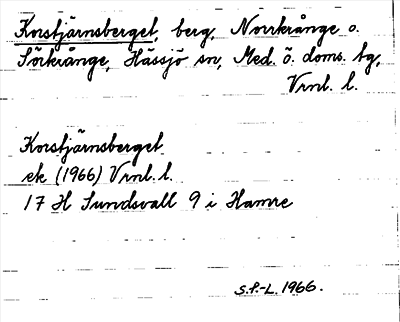 Korstjärnsberget, berg, Norrkrånge o.
Sörkrånge, Hässjö sn, Med. ö. doms. tg,
Vrnl. l.
Korstjärnsberget
ek (1966) Vrnl. l.
17 H Sundsvall 9 i Hamre
S.P-L. 1966.